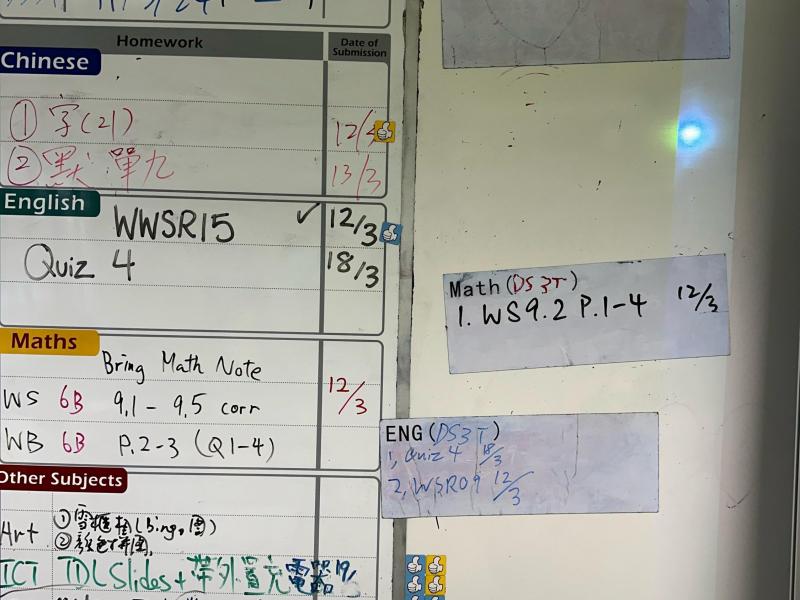 Homework Date of Submission
Chinese
① 字(21) 12/3
② 默: 單九 13/3
English
WWSR15 ✓ 12/3
Quiz 4 18/3
Maths
Bring Math Note
WS 6B 9.1 - 9.5 corr 12/3
WB 6B P.2-3 (Q1-4)
Other Subjects
Art ①
②
ICT TDL Slides + 帶外置充電器 19/
Math (DS3T)
1. WS9.2 P.1-4 12/3
ENG (DS3T)
1, Quiz 4 18/3
2, WSR09 12/3